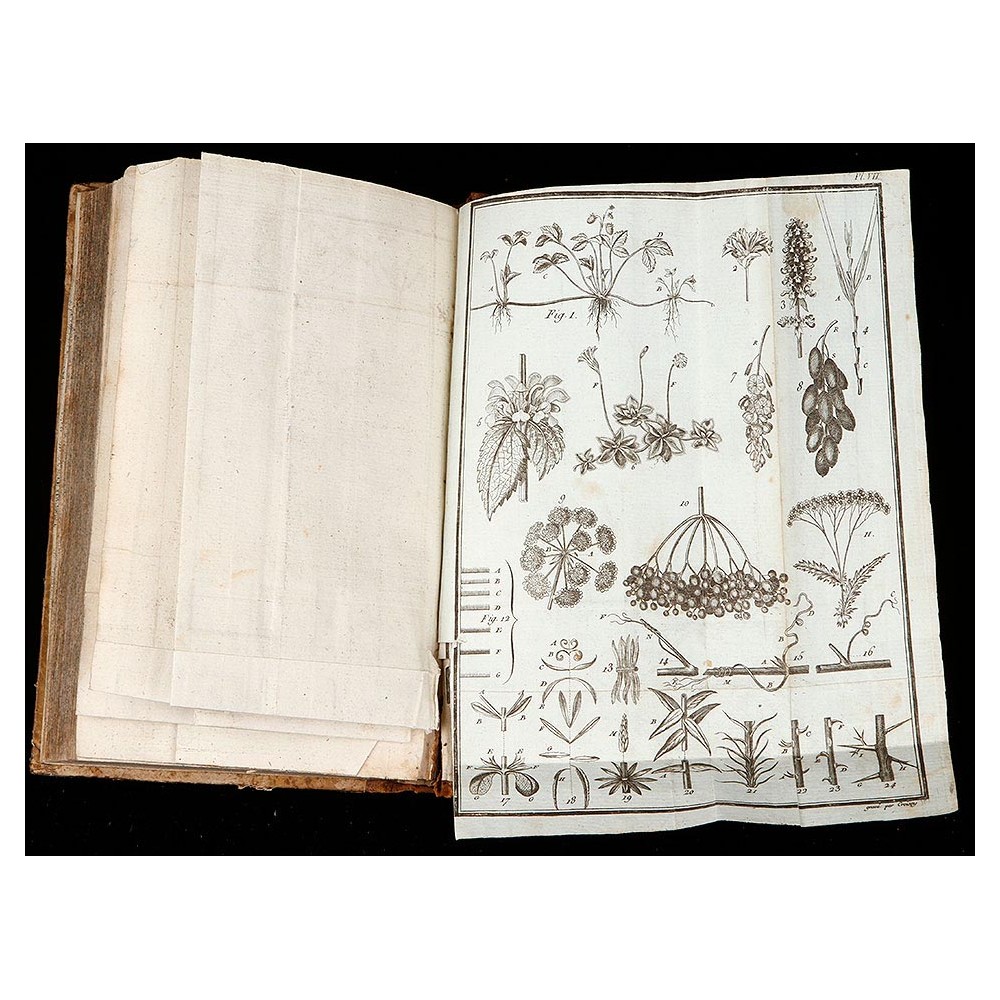 Pl. VII.
D
C
B
Fig. 1.
2
3
B
A
4
C
5
F
F
6
R
7
R
S
8
9
A
B
10
H.
A
B
C
D
E
F
G
Fig. 12
A
B
C
D
E
G
H
18
13
F
N
14
M
D
B
A
15
B
C
16
A
A
B
B
E
E
F
F
G
G
17
M
19
B
A
20
21
B
C
22
F
D
23
F
G
H
24
gravé par